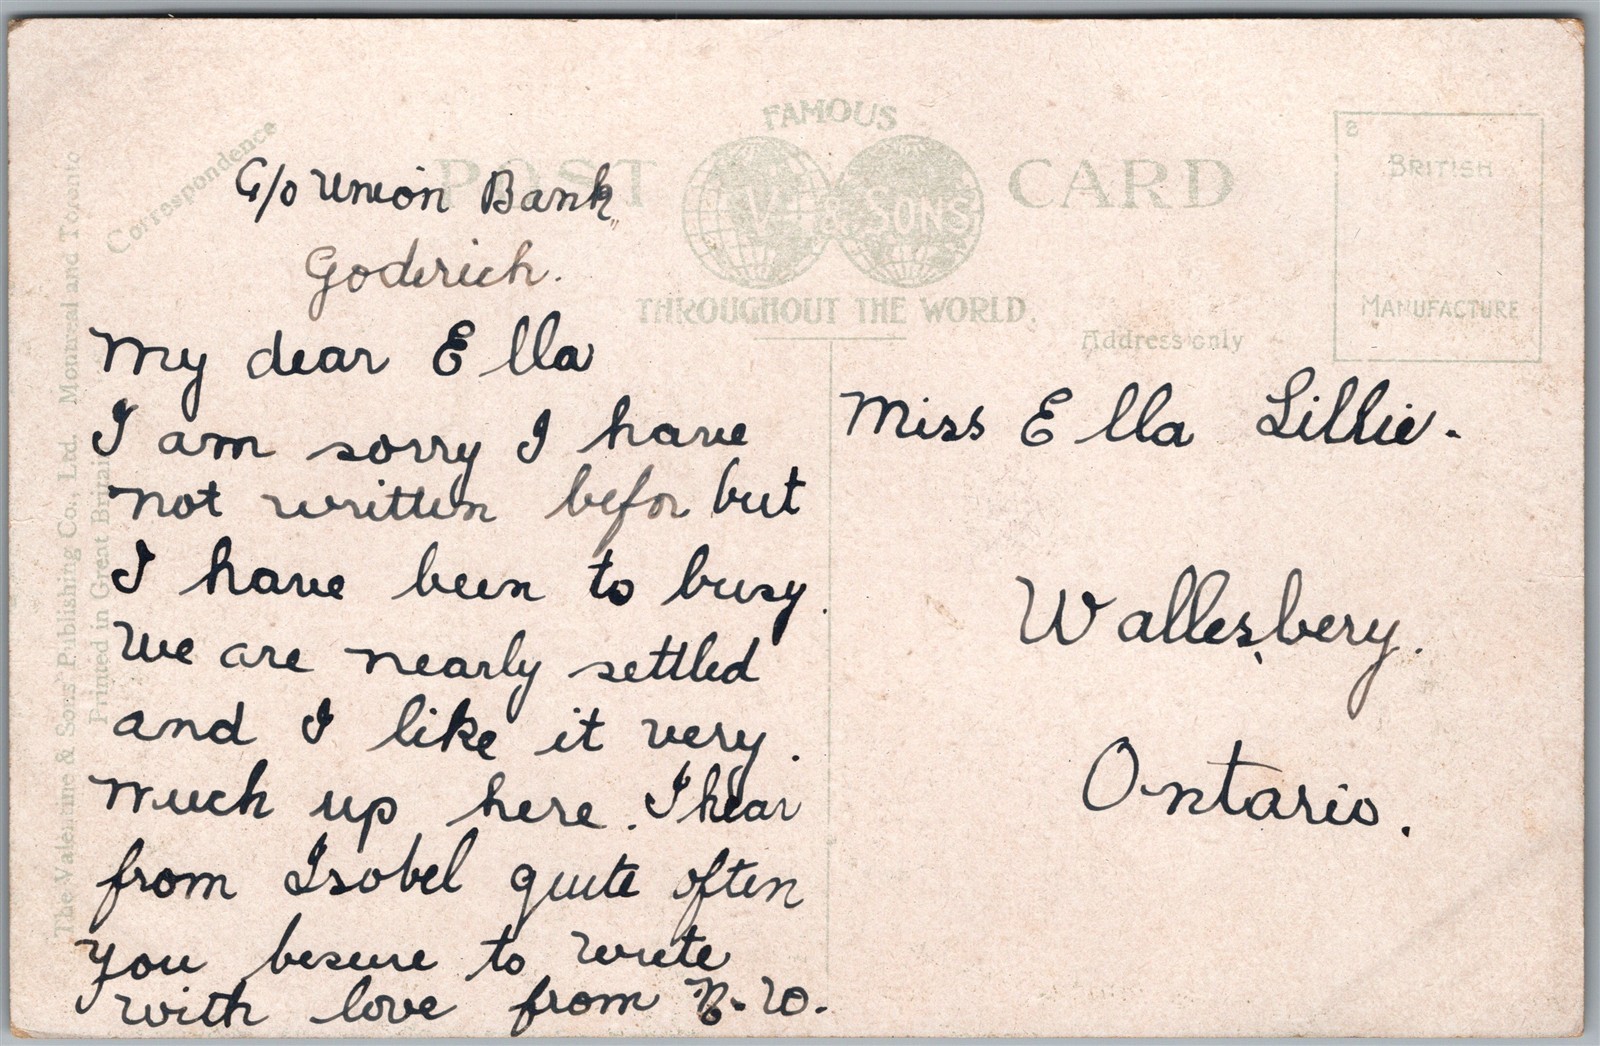 FAMOUS
POST CARD
V. & SONS
THROUGHOUT THE WORLD.
Correspondence
Address only
8
BRITISH
MANUFACTURE
The Valentine & Sons Publishing Co., Ltd. Montreal and Toronto
Printed in Great Britain
C/o Union Bank
Goderich.
My dear Ella
I am sorry I have
not written befor but
I have been to busy.
We are nearly settled
and I like it very.
much up here. I hear
from Isobel quite often
you besure to write
with love from
Miss Ella Lillie.
Wallesbery.
Ontario.